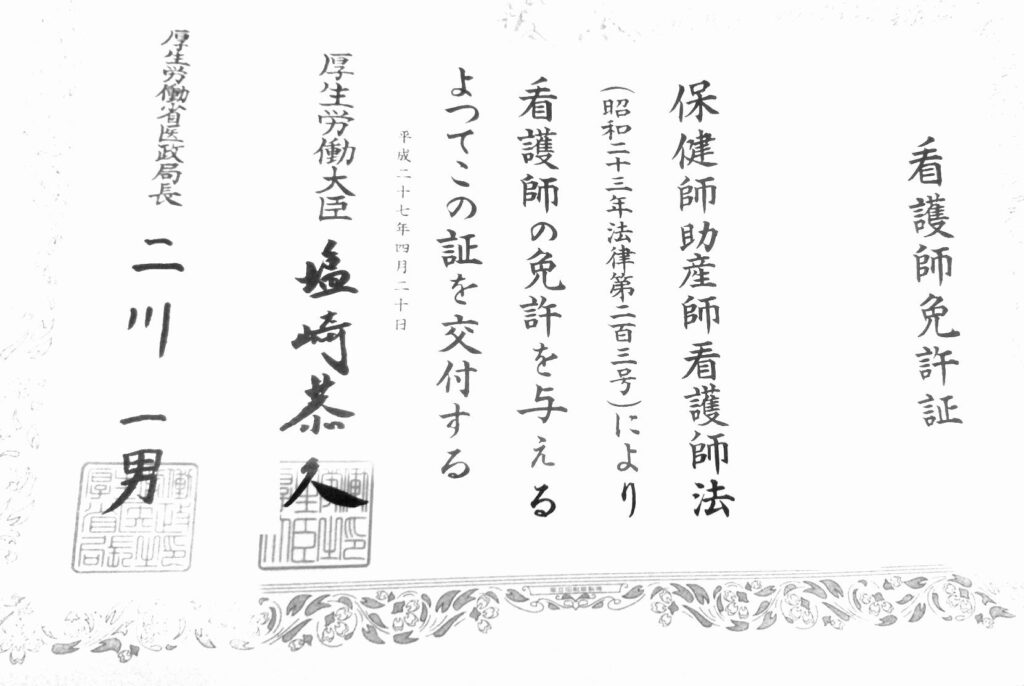 看護師免許証
保健師助産師看護師法
(昭和二十三年法律第二百三号)により
看護師の免許を与える
よつてこの証を交付する
平成二十七年四月二十日
厚生労働大臣 塩崎恭久
厚生労働省医政局長 二川一男